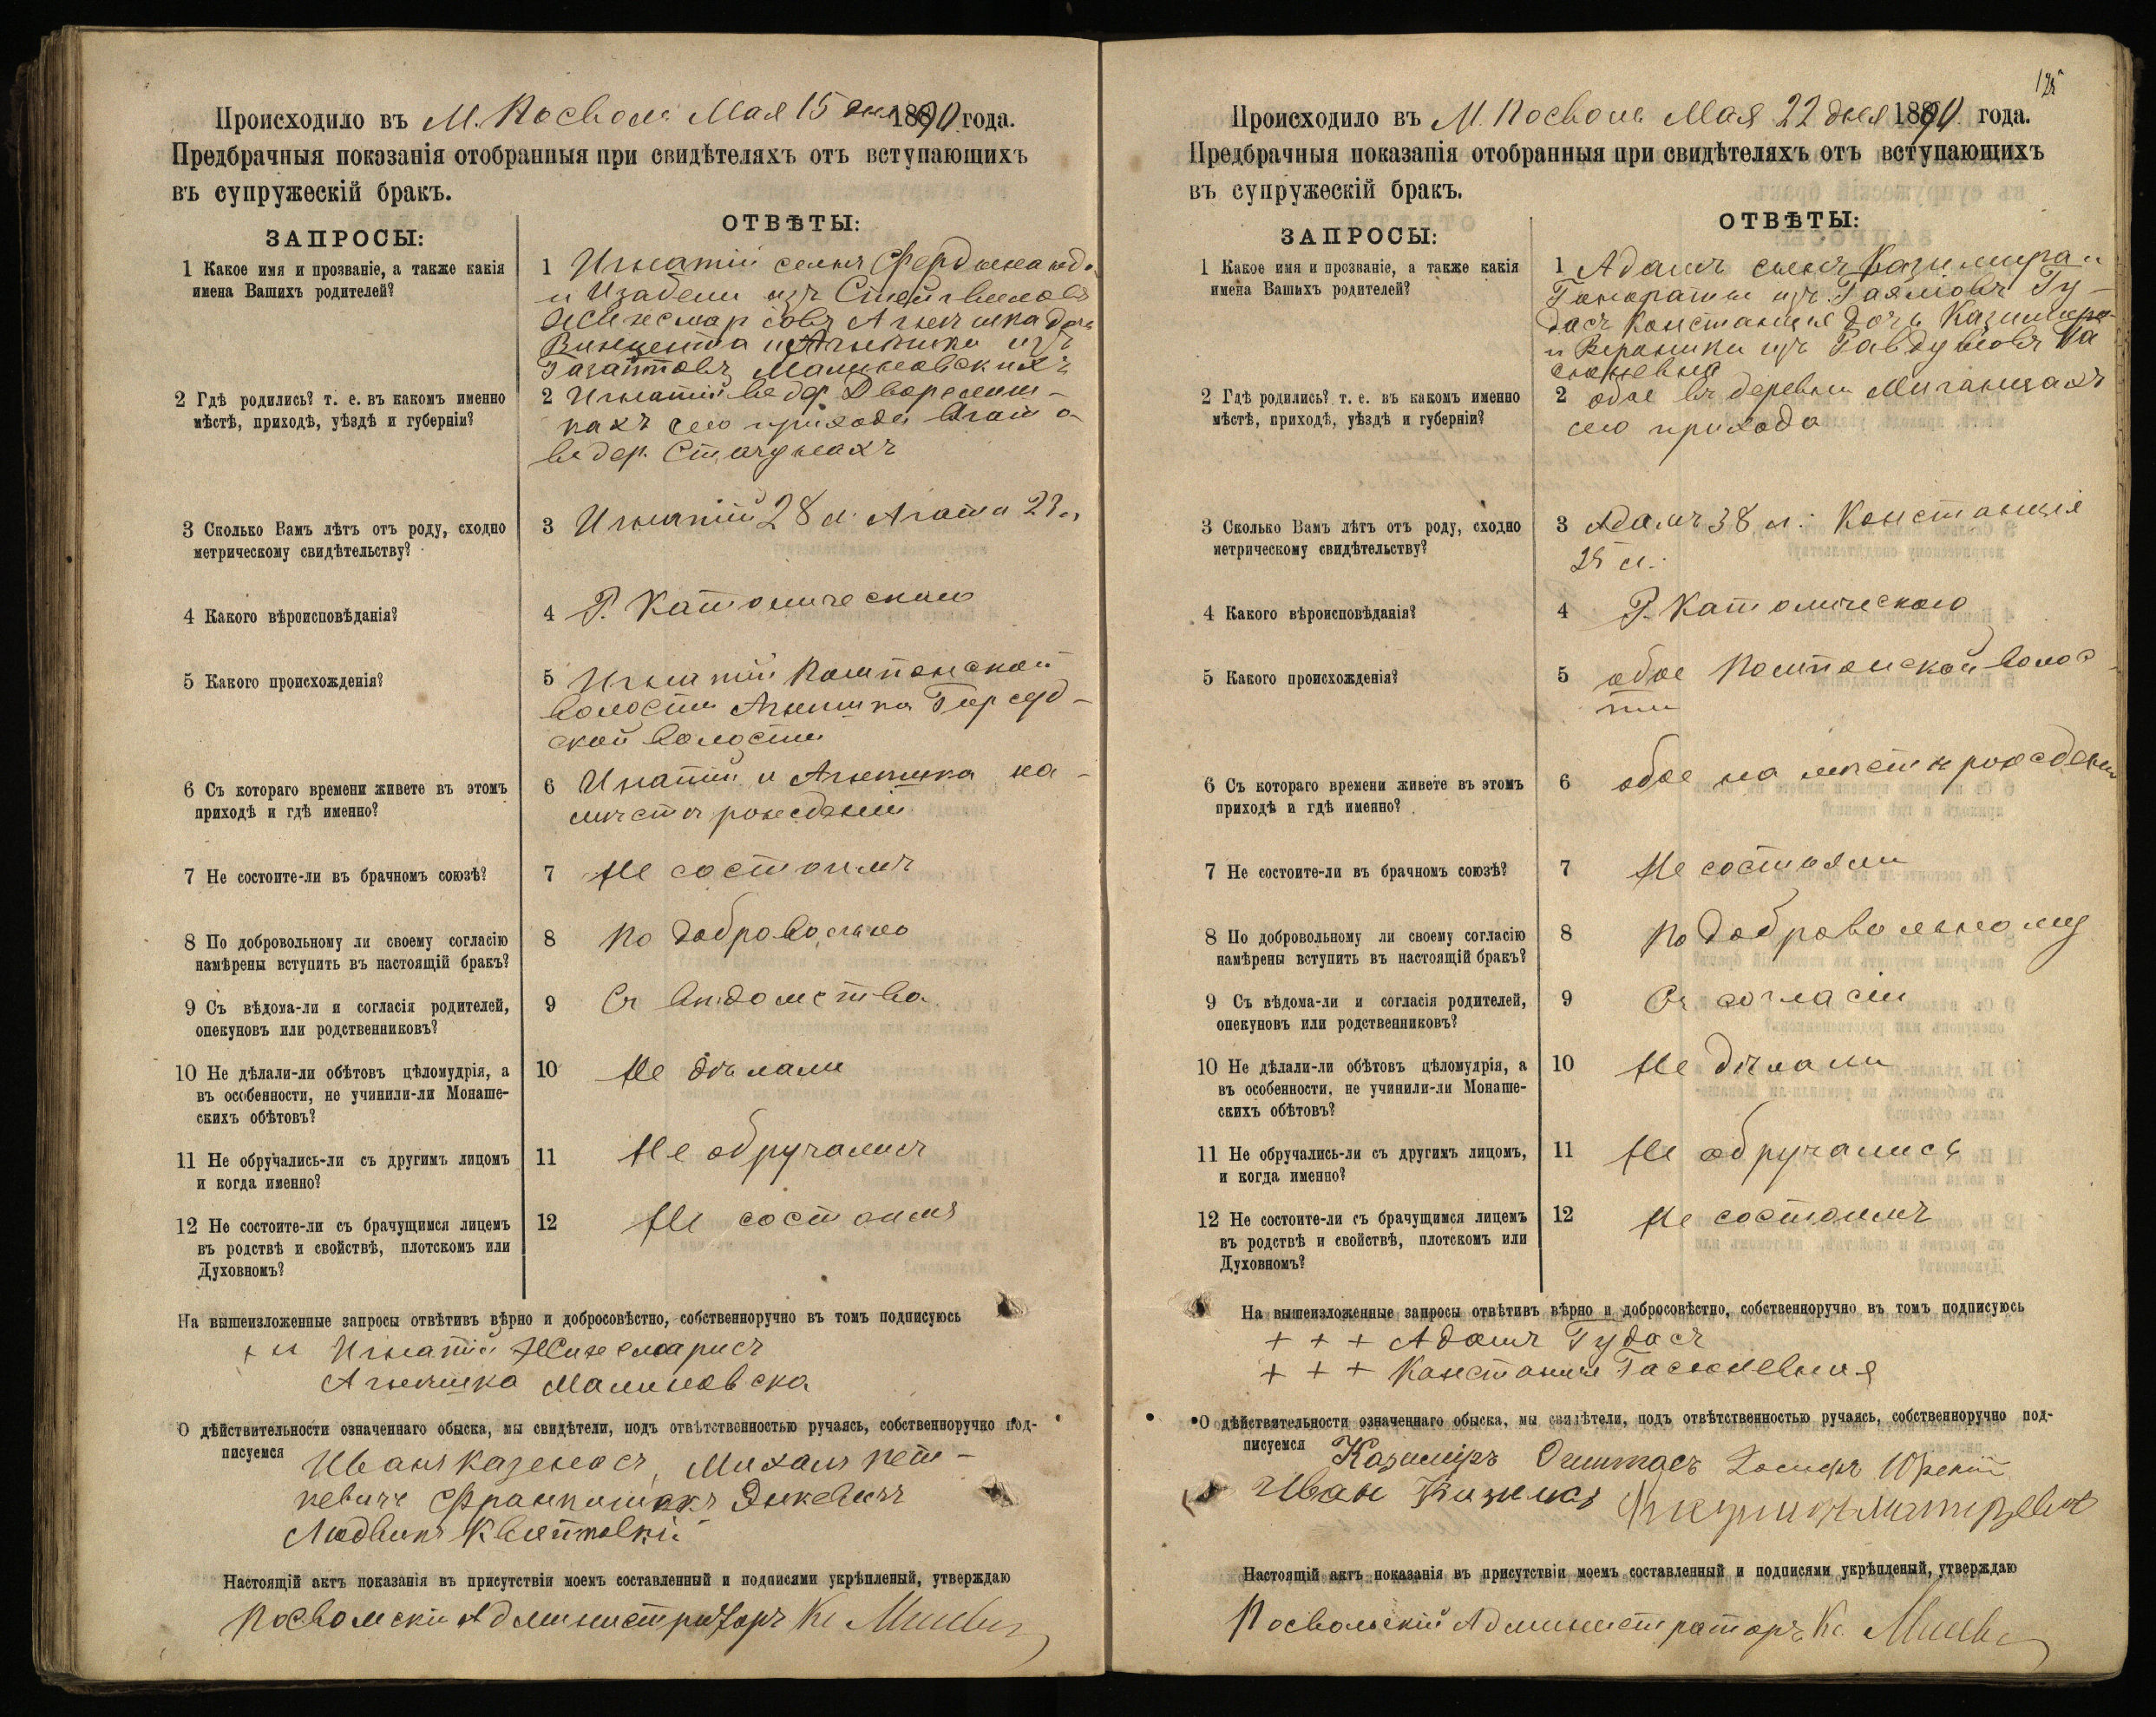 Происходило въ М. Посволь Мая 15 дня 1890 года.
Предбрачныя показанія отобранныя при свидѣтеляхъ отъ вступающихъ
въ супружескій бракъ.
ЗАПРОСЫ:
ОТВѢТЫ:
1 Какое имя и прозваніе, а также какія
имена Вашихъ родителей?
1 Игнатій сынъ Фердинанда
и Изабели изъ
Агнешка дочь
Винцента и Агнешки изъ
Малиновскихъ
2 Гдѣ родились? т. е. въ какомъ именно
мѣстѣ, приходѣ, уѣздѣ и губерніи?
2 Игнатій въ дер.
сего прихода Агата
въ дер.
3 Сколько Вамъ лѣтъ отъ роду, сходно
метрическому свидѣтельству?
3 Игнатій 28 л. Агата 23 л
4 Какого вѣроисповѣданія?
4 Р. Католическаго
5 Какого происхожденія?
5 Игнатій Помпянской
волости Агнешка
ской волости
6 Съ котораго времени живете въ этомъ
приходѣ и гдѣ именно?
6 Игнатій и Агнешка на
мѣстѣ рожденій
7 Не состоите-ли въ брачномъ союзѣ?
7 Не состоимъ
8 По добровольному ли своему согласію
намѣрены вступить въ настоящій бракъ?
8 По добровольно
9 Съ вѣдома-ли и согласія родителей,
опекуновъ или родственниковъ?
9 Съ вѣдомства
10 Не дѣлали-ли обѣтовъ цѣломудрія, а
въ особенности, не учинили-ли Монаше-
скихъ обѣтовъ?
10 Не дѣлали
11 Не обручались-ли съ другимъ лицомъ
и когда именно?
11 Не обручались
12 Не состоите-ли съ брачущимся лицемъ
въ родствѣ и свойствѣ, плотскомъ или
Духовномъ?
12 Не состоимъ
На вышеизложенные запросы отвѣтивъ вѣрно и добросовѣстно, собственноручно въ томъ подписуюсь
Игнатій Жижмарисъ
Агнешка Малиновска
О дѣйствительности означеннаго обыска, мы свидѣтели, подъ отвѣтственностью ручаясь, собственноручно под-
писуемся
Иванъ Казенасъ, Михалъ Пет-
кевичъ Францишекъ Энкевичъ
Людвикъ
Настоящій актъ показанія въ присутствіи моемъ составленный и подписями укрѣпленый, утверждаю
Посвольскій Администраторъ Кс.
125
Происходило въ М. Посволь Мая 22 дня 1890 года.
Предбрачныя показанія отобранныя при свидѣтеляхъ отъ вступающихъ
въ супружескій бракъ.
ЗАПРОСЫ:
ОТВѢТЫ:
1 Какое имя и прозваніе, а также какія
имена Вашихъ родителей?
1 Адамъ сынъ Казимира и
Гонораты изъ Гу-
дасъ Констанція дочь Казимира
и Вероники изъ
2 Гдѣ родились? т. е. въ какомъ именно
мѣстѣ, приходѣ, уѣздѣ и губерніи?
2 обое въ деревни
сего прихода
3 Сколько Вамъ лѣтъ отъ роду, сходно
метрическому свидѣтельству?
3 Адамъ 38 л. Констанція
25 л.
4 Какого вѣроисповѣданія?
4 Р. Католическаго
5 Какого происхожденія?
5 обое Помпянской волос-
ти
6 Съ котораго времени живете въ этомъ
приходѣ и гдѣ именно?
6 обое на мѣстѣ рожденія
7 Не состоите-ли въ брачномъ союзѣ?
7 Не состояли
8 По добровольному ли своему согласію
намѣрены вступить въ настоящій бракъ?
8 По добровольному
9 Съ вѣдома-ли и согласія родителей,
опекуновъ или родственниковъ?
9 Съ согласіи
10 Не дѣлали-ли обѣтовъ цѣломудрія, а
въ особенности, не учинили-ли Монаше-
скихъ обѣтовъ?
10 Не дѣлали
11 Не обручались-ли съ другимъ лицомъ,
и когда именно?
11 Не обручались
12 Не состоите-ли съ брачущимся лицемъ
въ родствѣ и свойствѣ, плотскомъ или
Духовномъ?
12 Не состоимъ
На вышеизложенные запросы отвѣтивъ вѣрно и добросовѣстно, собственноручно въ томъ подписуюсь
+ + + Адамъ Гудасъ
+ + + Констанція
О дѣйствительности означеннаго обыска, мы свидѣтели, подъ отвѣтственностью ручаясь, собственноручно под-
писуемся
Казиміръ
Иван
Настоящій актъ показанія въ присутствіи моемъ составленный и подписями укрѣпленый, утверждаю
Посвольскій Администраторъ Кс.